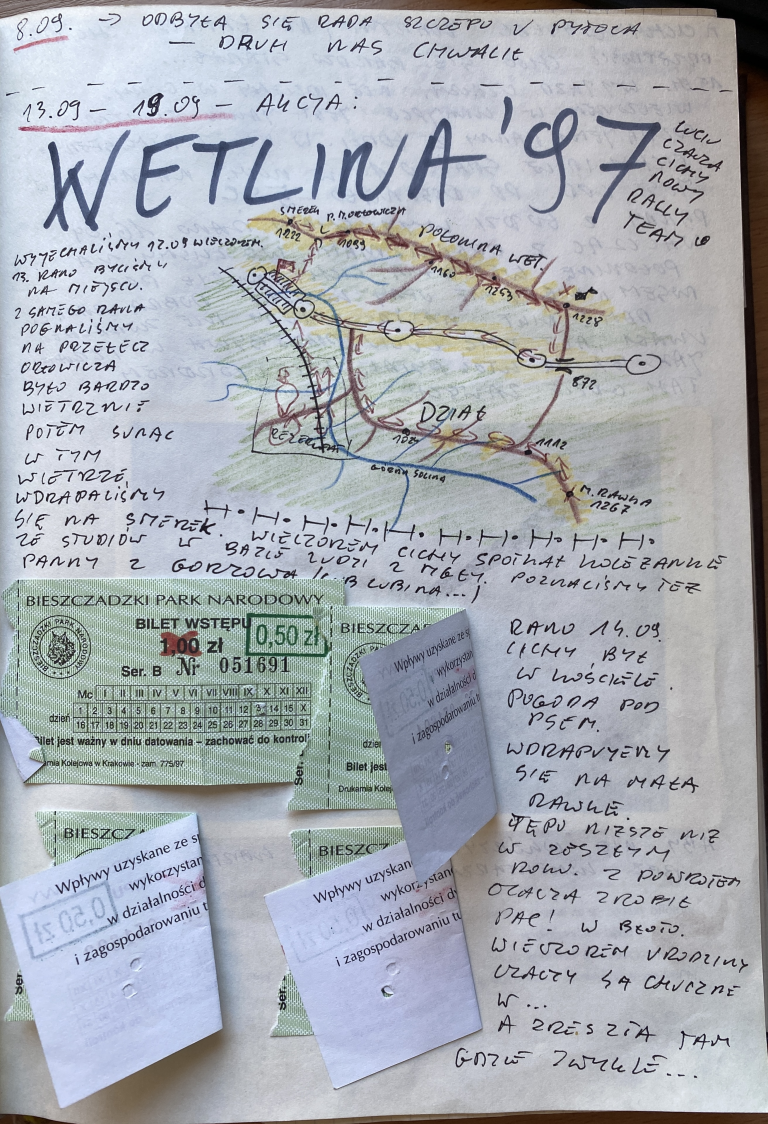 8.09. → ODBYŁA SIĘ RADA SZCZEPU V PYTOCA
— DRUH NAS CHWALIŁ
13.09 – 19.09 – AKCJA:
WETLINA '97
LUCIU
CZACZA
CICHY
NOWY
RALLY
TEAM
WYJECHALIŚMY 12.09 WIECZOREM.
13. RANO BYLIŚMY
NA MIEJSCU.
Z SAMEGO RANA
POGNALIŚMY
NA PRZEŁĘCZ
ORŁOWICZA
BYŁO BARDZO
WIETRZNIE
POTEM
W TYM
WIETRZE
WDRAPALIŚMY
SIĘ NA SMEREK. WIECZOREM CICHY SPOTKAŁ KOLEŻANKĘ
ZE STUDIÓW W BAZIE LUDZI Z MGŁY. POZNALIŚMY TEŻ
PANNY Z GORZOWA (LUB LUBINA...)
SMEREK P. M. ORŁOWICZA
1222
1099
POŁONINA WET.
1160
1253
1228
872
DZIAŁ
1112
M. RAWKA
1267
GÓRNA SOLINA
BIESZCZADZKI PARK NARODOWY
BILET WSTĘPU
1,00 zł
0,50 zł
Ser. B Nr 051691
Mc I II III IV V VI VII VIII IX X XI XII
dzień 1 2 3 4 5 6 7 8 9 10 11 12 13 14 15 X
16 17 18 19 20 21 22 23 24 25 26 27 28 29 30 31
Bilet jest ważny w dniu datowania – zachować do kontroli
Drukarnia Kolejowa w Krakowie - zam. 775/97
BIESZCZA
BIESZCZADZKI
dzie
Bilet jest
Drukarnia Kolej
Wpływy uzyskane ze s
wykorzystan
w działalności d
i zagospodarowaniu t
BIESZCZA
Ser.
Wpływy uzyskane ze s
wykorzystan
w działalności d
i zagospodarowaniu tu
0,50 zł
BIESZCZADZK
Ser.
Wpływy uzyskan
wykorzystane
w działalności d
i zagospodarowaniu tu
RANO 14.09.
CICHY BYŁ
W KOŚCIELE.
POGODA POD
PSEM.
WDRAPUJEMY
SIĘ NA MAŁĄ
RAWKĘ.
TĘPO NIŻSZE NIŻ
W ZESZŁYM
ROKU. Z POWROTEM
CZACZA ZROBIŁ
PAC! W BŁOTO.
WIECZOREM URODZINY
CZACZY SĄ HUCZNE
W...
A ZRESZTĄ TAM
GDZIE ZWYKLE...